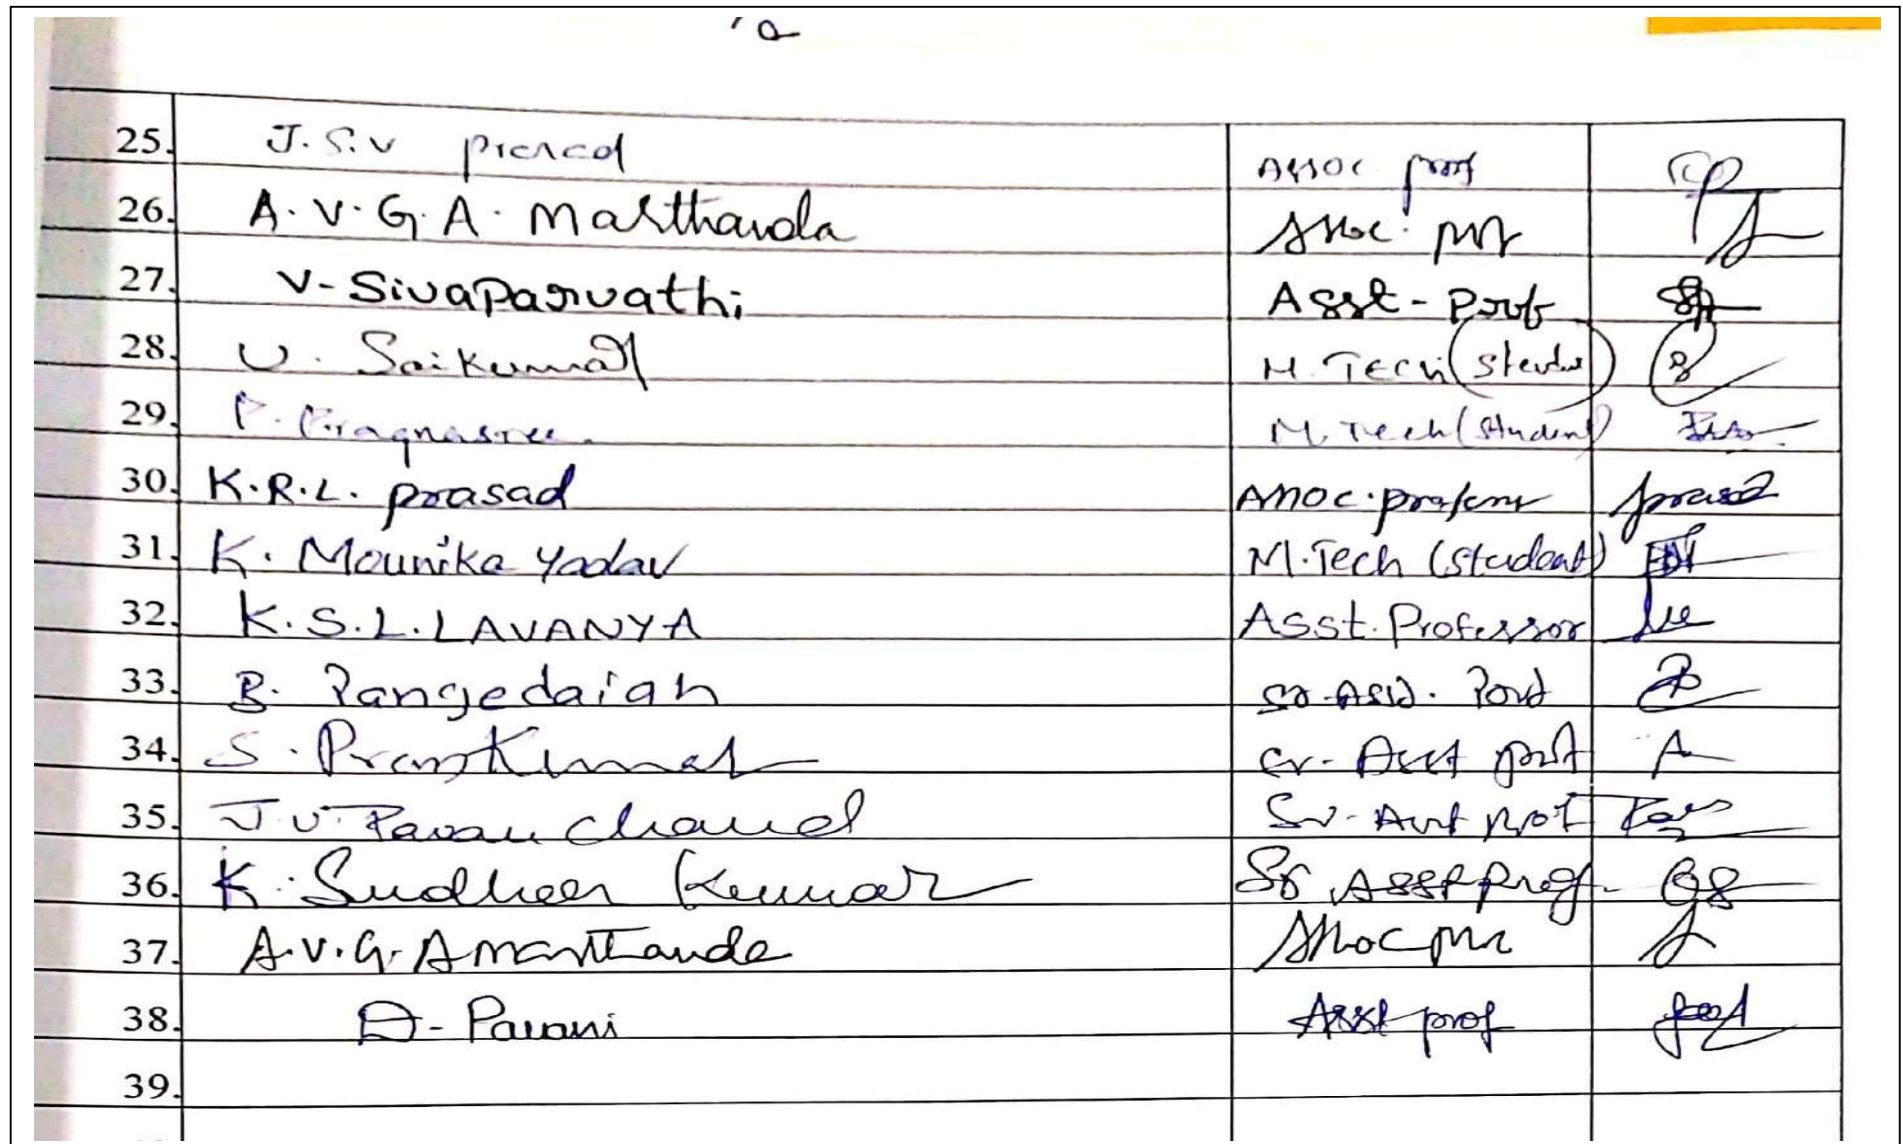 25. J.S.V prasad Assoc prof
26. A.V.G.A. Marthanda Assoc. prof
27. V-Sivaparvathi Asst-Prof
28. U. Saikumar M.Tech (Student)
29. P. Pragnasree. M.Tech (Student)
30. K.R.L. prasad Assoc. professor prasad
31. K. Mounika Yadav M.Tech (student)
32. K.S.L. LAVANYA Asst. Professor
33. B. Rangedaiah Sr. Asst. Prof
34. S. Kumar Sr- Asst prof
35. J.V. Pavan Chand Sr- Asst prof
36. K. Sudheer Kumar Sr Asst prof.
37. A.V.G. A Marthanda Assoc prof
38. D- Pavani Asst prof
39.